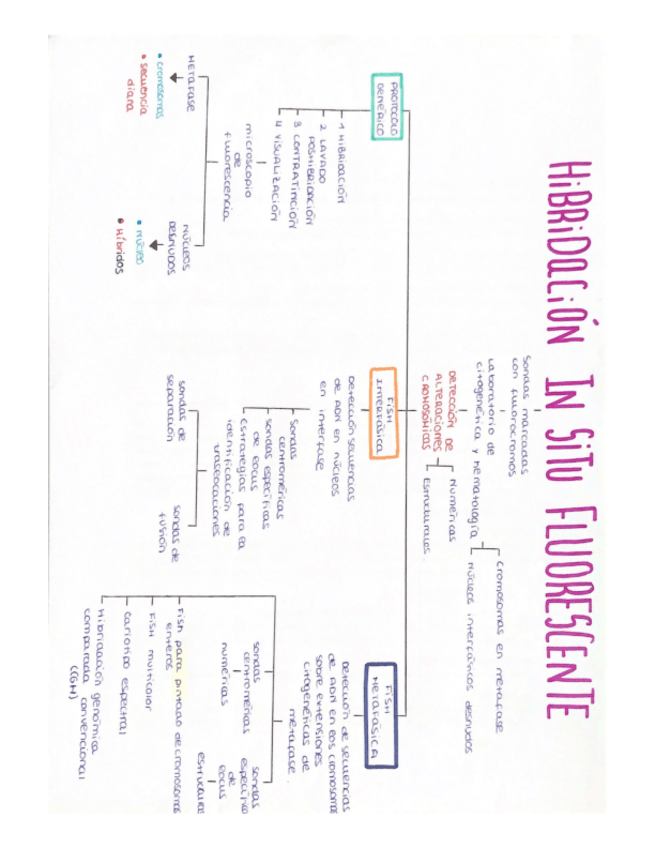 HiBRiDaCiÓN IN SiTU FLUORESCENTE
Sondas marcadas
con fluorocromos
Laboratorio de
citogenética y hematología
Cromosomas en metafase
Núcleos interfásicos desnudos
DETECCIÓN DE
ALTERACIONES
CROMOSÓMICAS
Numéricas
Estructurales.
PROTOCOLO
GENÉRICO
1 HIBRIDACIÓN
2 LAVADO
POSHIBRIDACIÓN
3 CONTRATINCIÓN
4 VISUALIZACIÓN
microscopio
de
fluorescencia
METAFASE
• cromosomas
• secuencia
diana
NÚCLEOS
DESNUDOS
• Núcleo
• Híbridos
FISH
INTERFÁSICA
Detección secuencias
de ADN en núcleos
en interfase
Sondas
centroméricas
Sondas específicas
de locus
Estrategias para la
identificación de
traslocaciones
sondas de
separación
sondas de
fusión
FISH
METAFÁSICA
Detección de secuencias
de ADN en los cromosomas
sobre extensiones
citogenéticas de
metafase.
sondas
centroméricas
numéricas
sondas
específica
de
locus
estructuras
Fish para pintado de cromosomas
enteros
FISH multicolor
Cariotipo espectral
Hibridación genómica
comparada convencional
(CGH)